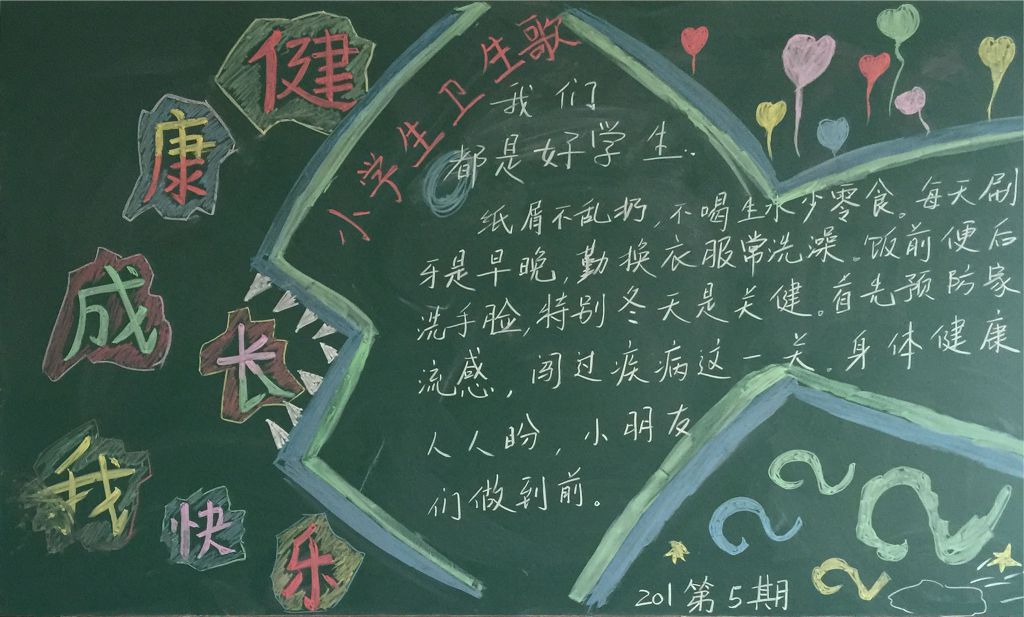 健
康
成
长
我
快
乐
小学生卫生歌
我们
都是好学生..
纸屑不乱扔,不喝生水少零食。每天刷
牙是早晚,勤换衣服常洗澡。饭前便后
洗手脸,特别冬天是关健。首先预防家
流感,闯过疾病这一关。身体健康
人人盼,小朋友
们做到前。
201第5期